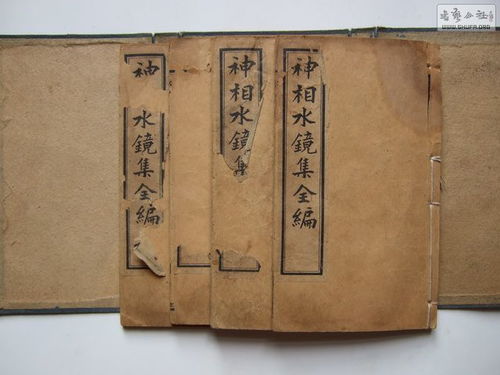 神相水鏡集全編
神相水鏡集
神
水鏡集全編
WWW.SHUFA.ORG